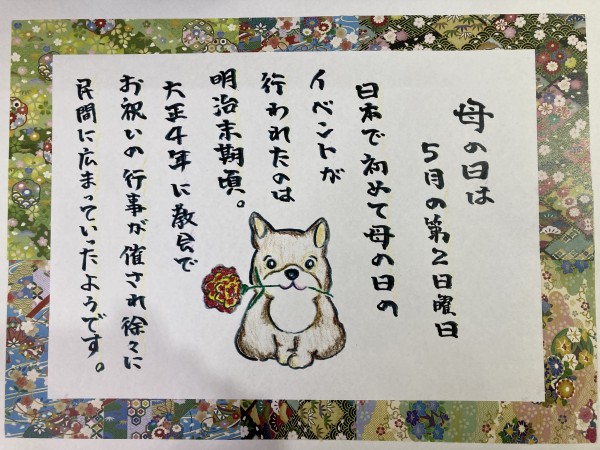 母の日は
5月の第2日曜日
日本で初めて母の日の
イベントが
行われたのは
明治末期頃。
大正4年に教会で
お祝いの行事が催され徐々に
民間に広まっていったようです。